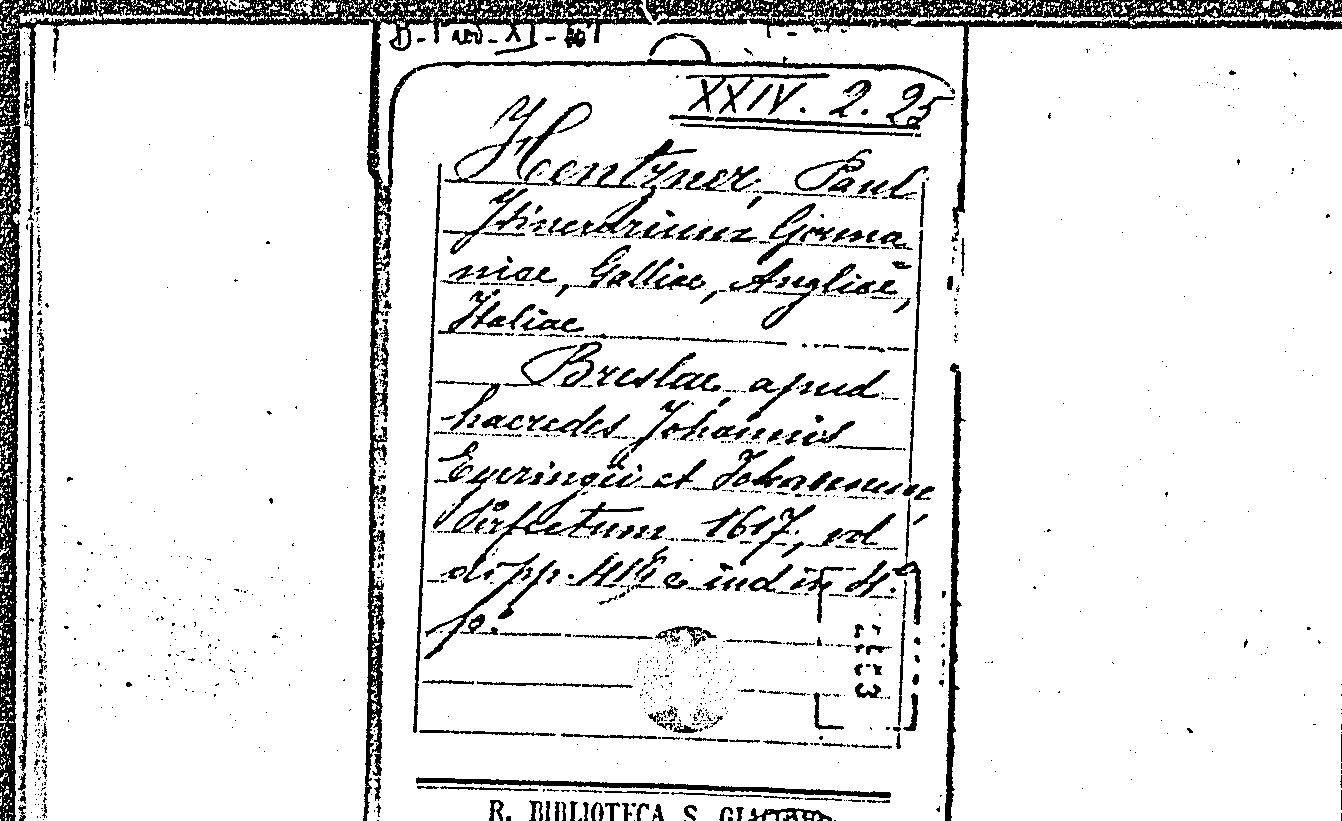 XXIV. 2. 25
Hentzner, Paul
Itinerarium Germa
niae, Galliae, Angliae,
Italiae
Breslae, apud
haeredes Johannis
Eyeringii et Johannem
Perfectum 1617, vol
di pp. 418 e ind in 4.º
p.º
R. BIBLIOTECA S. GIACOMO